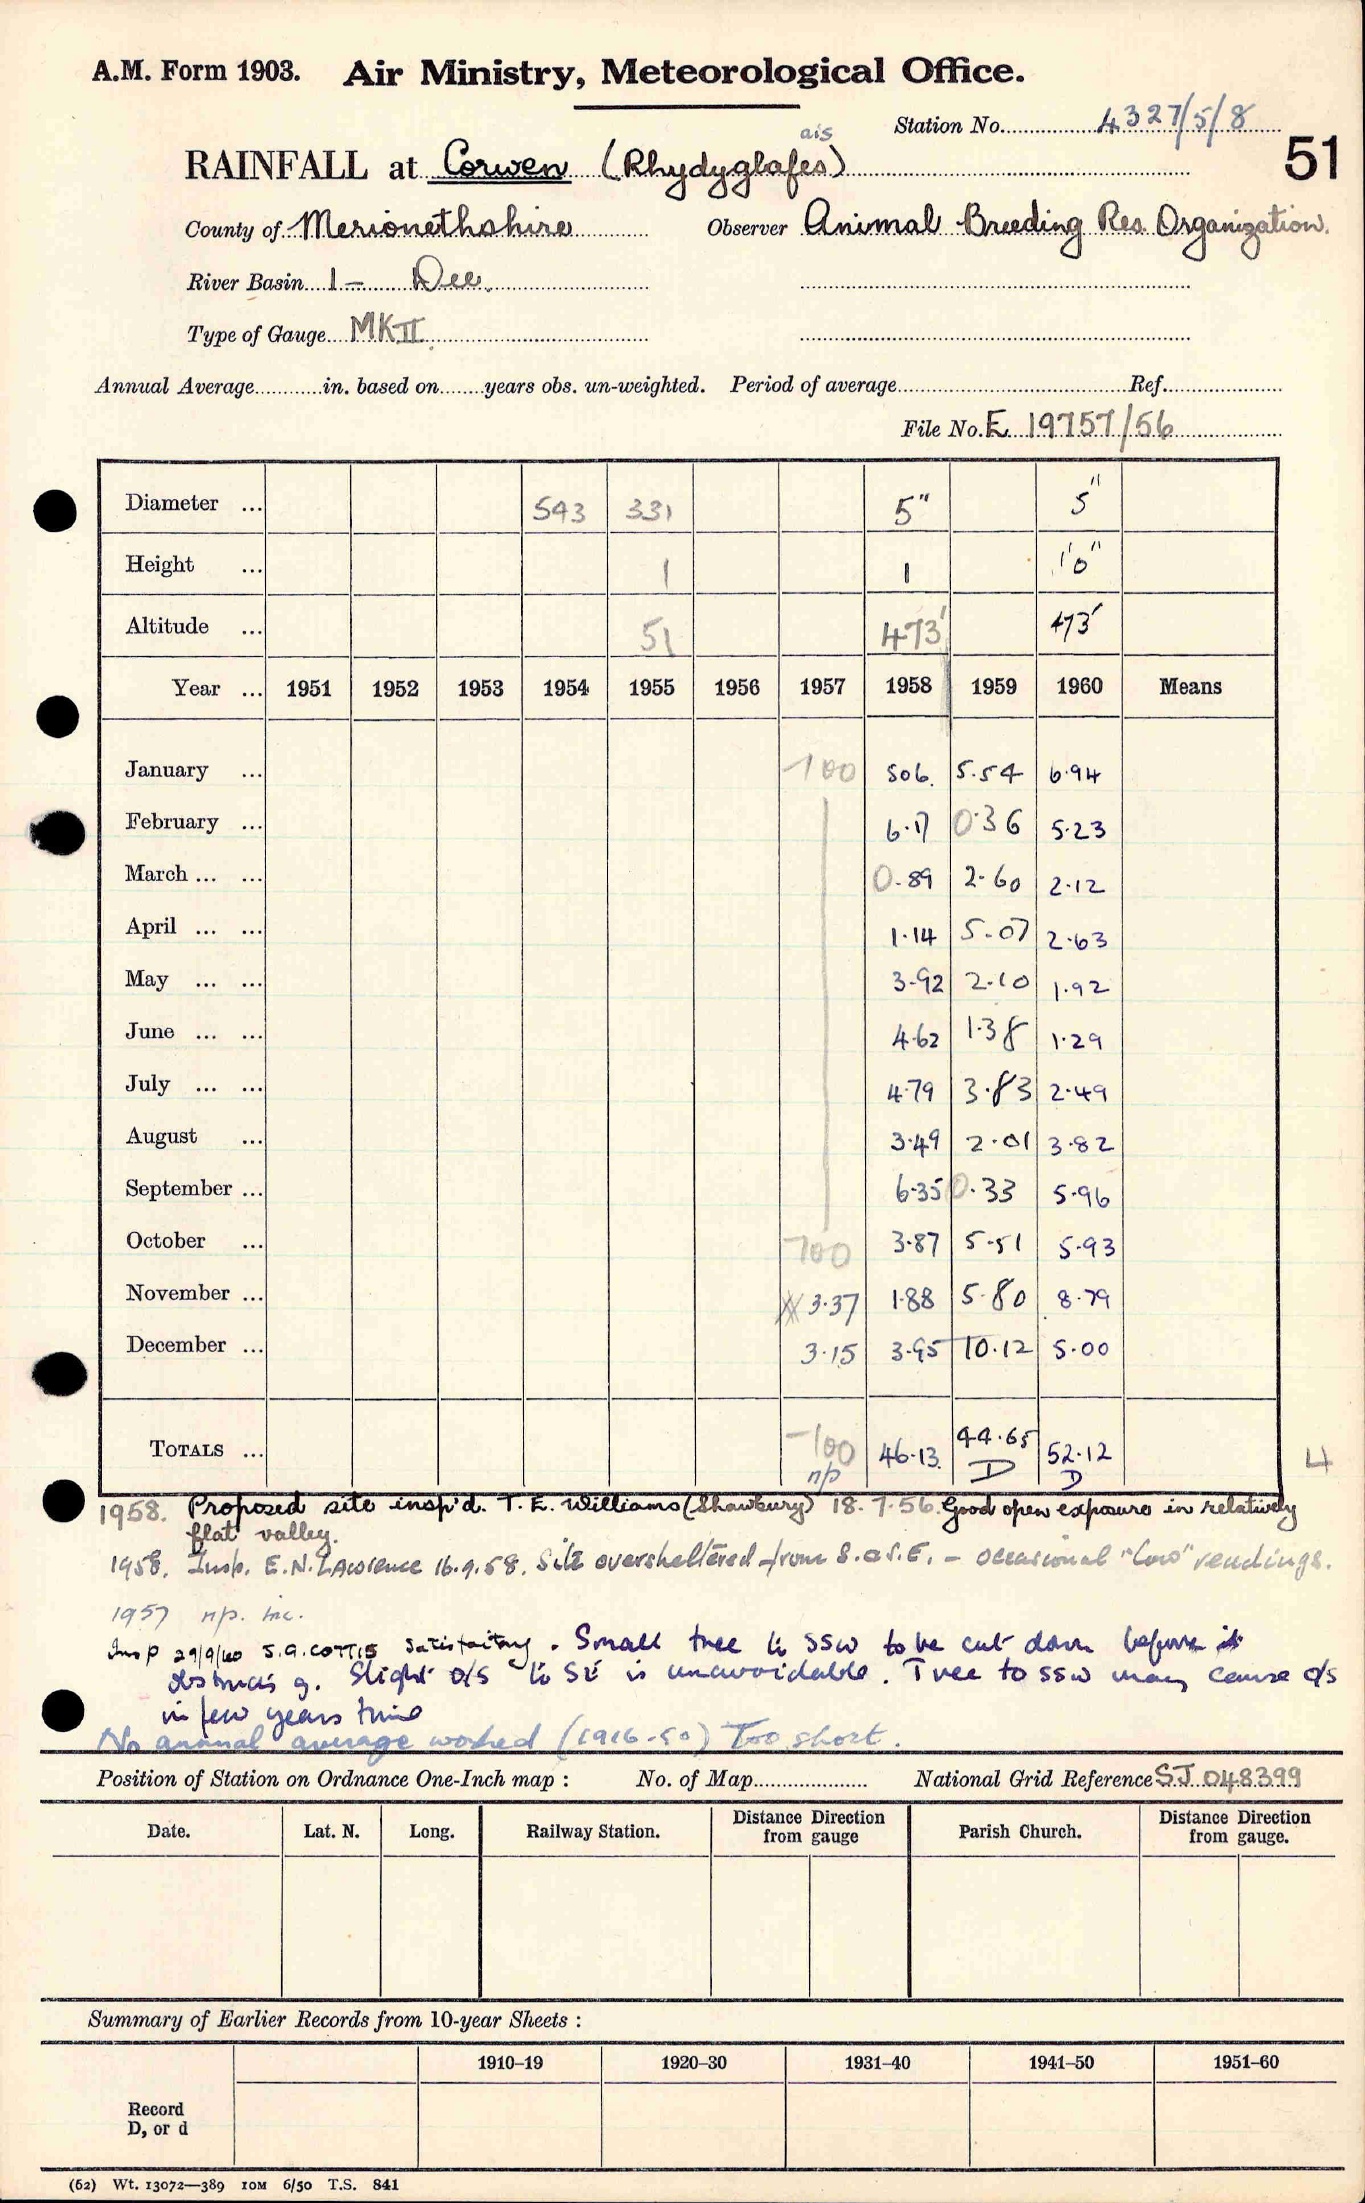 A.M. Form 1903. Air Ministry, Meteorological Office.
Station No. 4327/5/8
51
ais
RAINFALL at Corwen (Rhydyglafes)
County of Merionethshire Observer Animal Breeding Res. Organization.
River Basin 1 - Dee.
Type of Gauge MK II
Annual Average in. based on years obs. un-weighted. Period of average Ref.
File No. E 19757/56
Diameter ... 593 331 5" 5"
Height ... 1 1 1'0"
Altitude ... 51 473' 473'
Year ... 1951 1952 1953 1954 1955 1956 1957 1958 1959 1960 Means
January ... -100 506. 5.54 6.94
February ... 6.17 0.36 5.23
March ... ... 0.89 2.60 2.12
April ... ... 1.14 5.07 2.63
May ... ... 3.92 2.10 1.92
June ... ... 4.62 1.38 1.29
July ... ... 4.79 3.83 2.49
August ... 3.49 2.01 3.82
September ... 6.35 0.33 5.96
October ... -100 3.87 5.51 5.93
November ... 3.37 1.88 5.80 8.79
December ... 3.15 3.95 10.12 5.00
TOTALS ... -100 46.13 44.65 52.12 4
np D D
1958. Proposed site insp'd. T. E. Williams (Shawbury) 18.7.56. Good open exposure in relatively
flat valley.
1958. Insp. E.N. Lawrence 16.9.58. Site oversheltered from S. & S.E. - occasional "low" readings.
1957 np. inc.
Insp 29/9/60 S.G. COTTIS Satisfactory. Small tree to SSW to be cut down before it
obstructs g. Slight o/s to SE is unavoidable. Tree to SSW may cause o/s
in few years time
No annual average worked (1916-50) Too short.
Position of Station on Ordnance One-Inch map : No. of Map National Grid Reference SJ 048399
Date. Lat. N. Long. Railway Station. Distance from gauge Direction Parish Church. Distance from gauge. Direction
Summary of Earlier Records from 10-year Sheets :
1910-19 1920-30 1931-40 1941-50 1951-60
Record
D, or d
(62) Wt. 13072—389 10M 6/50 T.S. 841